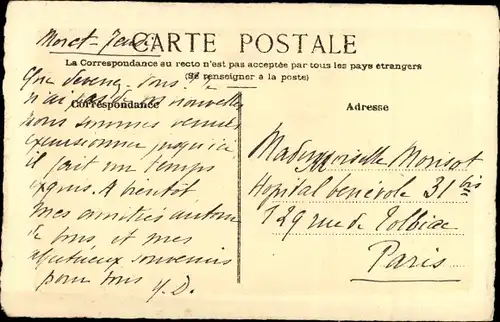 Moret - Jeudi
CARTE POSTALE
La Correspondance au recto n'est pas acceptée par tous les pays étrangers
(Se renseigner à la poste)
Correspondance
Adresse
Que devenez-vous ? Je
n'ai pas de vos nouvelles
nous sommes venus
excursionner jusqu'ici
il fait un temps
exquis. A bientôt
mes amitiés autour
de vous, et mes
affectueux souvenirs
pour vous
Y.D.
Mademoiselle Morisot
Hopital bénévole 31bis
129 rue de Tolbiac
Paris